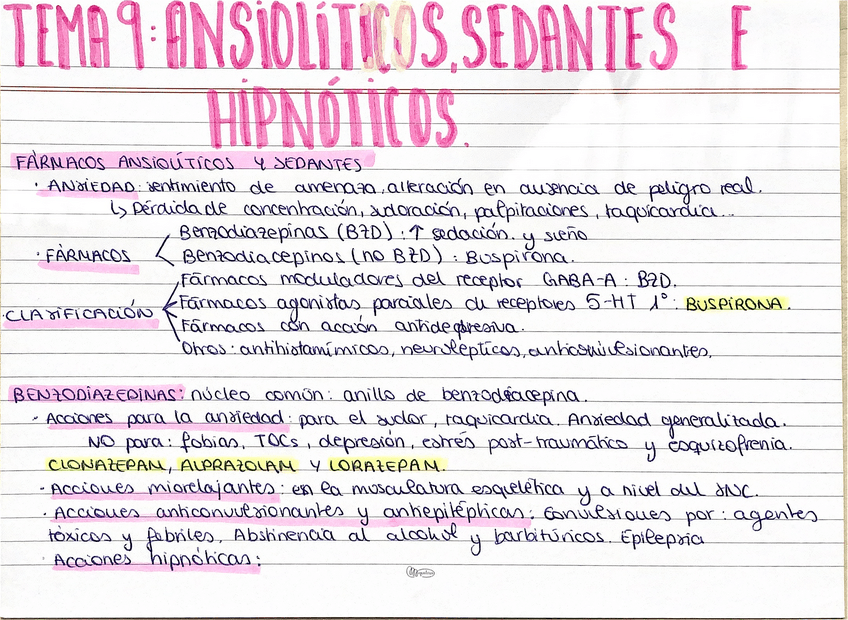 TEMA 9: ANSIOLÍTICOS, SEDANTES E
HIPNÓTICOS.
FÁRMACOS ANSIOLÍTICOS Y SEDANTES
· ANSIEDAD: sentimiento de amenaza, alteración en ausencia de peligro real.
↳ Pérdida de concentración, sudoración, palpitaciones, taquicardia...
Benzodiazepinas (BZD): ↑ sedación. y sueño
· FÁRMACOS < Benzodiacepinos (no BZD): Buspirona.
Fármacos moduladores del receptor GABA-A: BZD.
· CLASIFICACIÓN Fármacos agonistas parciales de receptores 5-HT 1º: BUSPIRONA.
Fármacos con acción antidepresiva.
Otros: antihistamímicos, neurolépticos, anticonvulsionantes.
BENZODIAZEPINAS: núcleo común: anillo de benzodiacepina.
· Acciones para la ansiedad: para el sudor, taquicardia. Ansiedad generalizada.
NO para: fobias, TOCs, depresión, estrés post-traumático y esquizofrenia.
CLONAZEPAM, ALPRAZOLAM Y LORAZEPAM.
· Acciones miorelajantes: en la musculatura esquelética y a nivel del SNC.
· Acciones anticonvulsionantes y antiepilépticas: Convulsiones por: agentes
tóxicos y febriles. Abstinencia al alcohol y barbitúricos. Epilepsia
· Acciones hipnóticas: